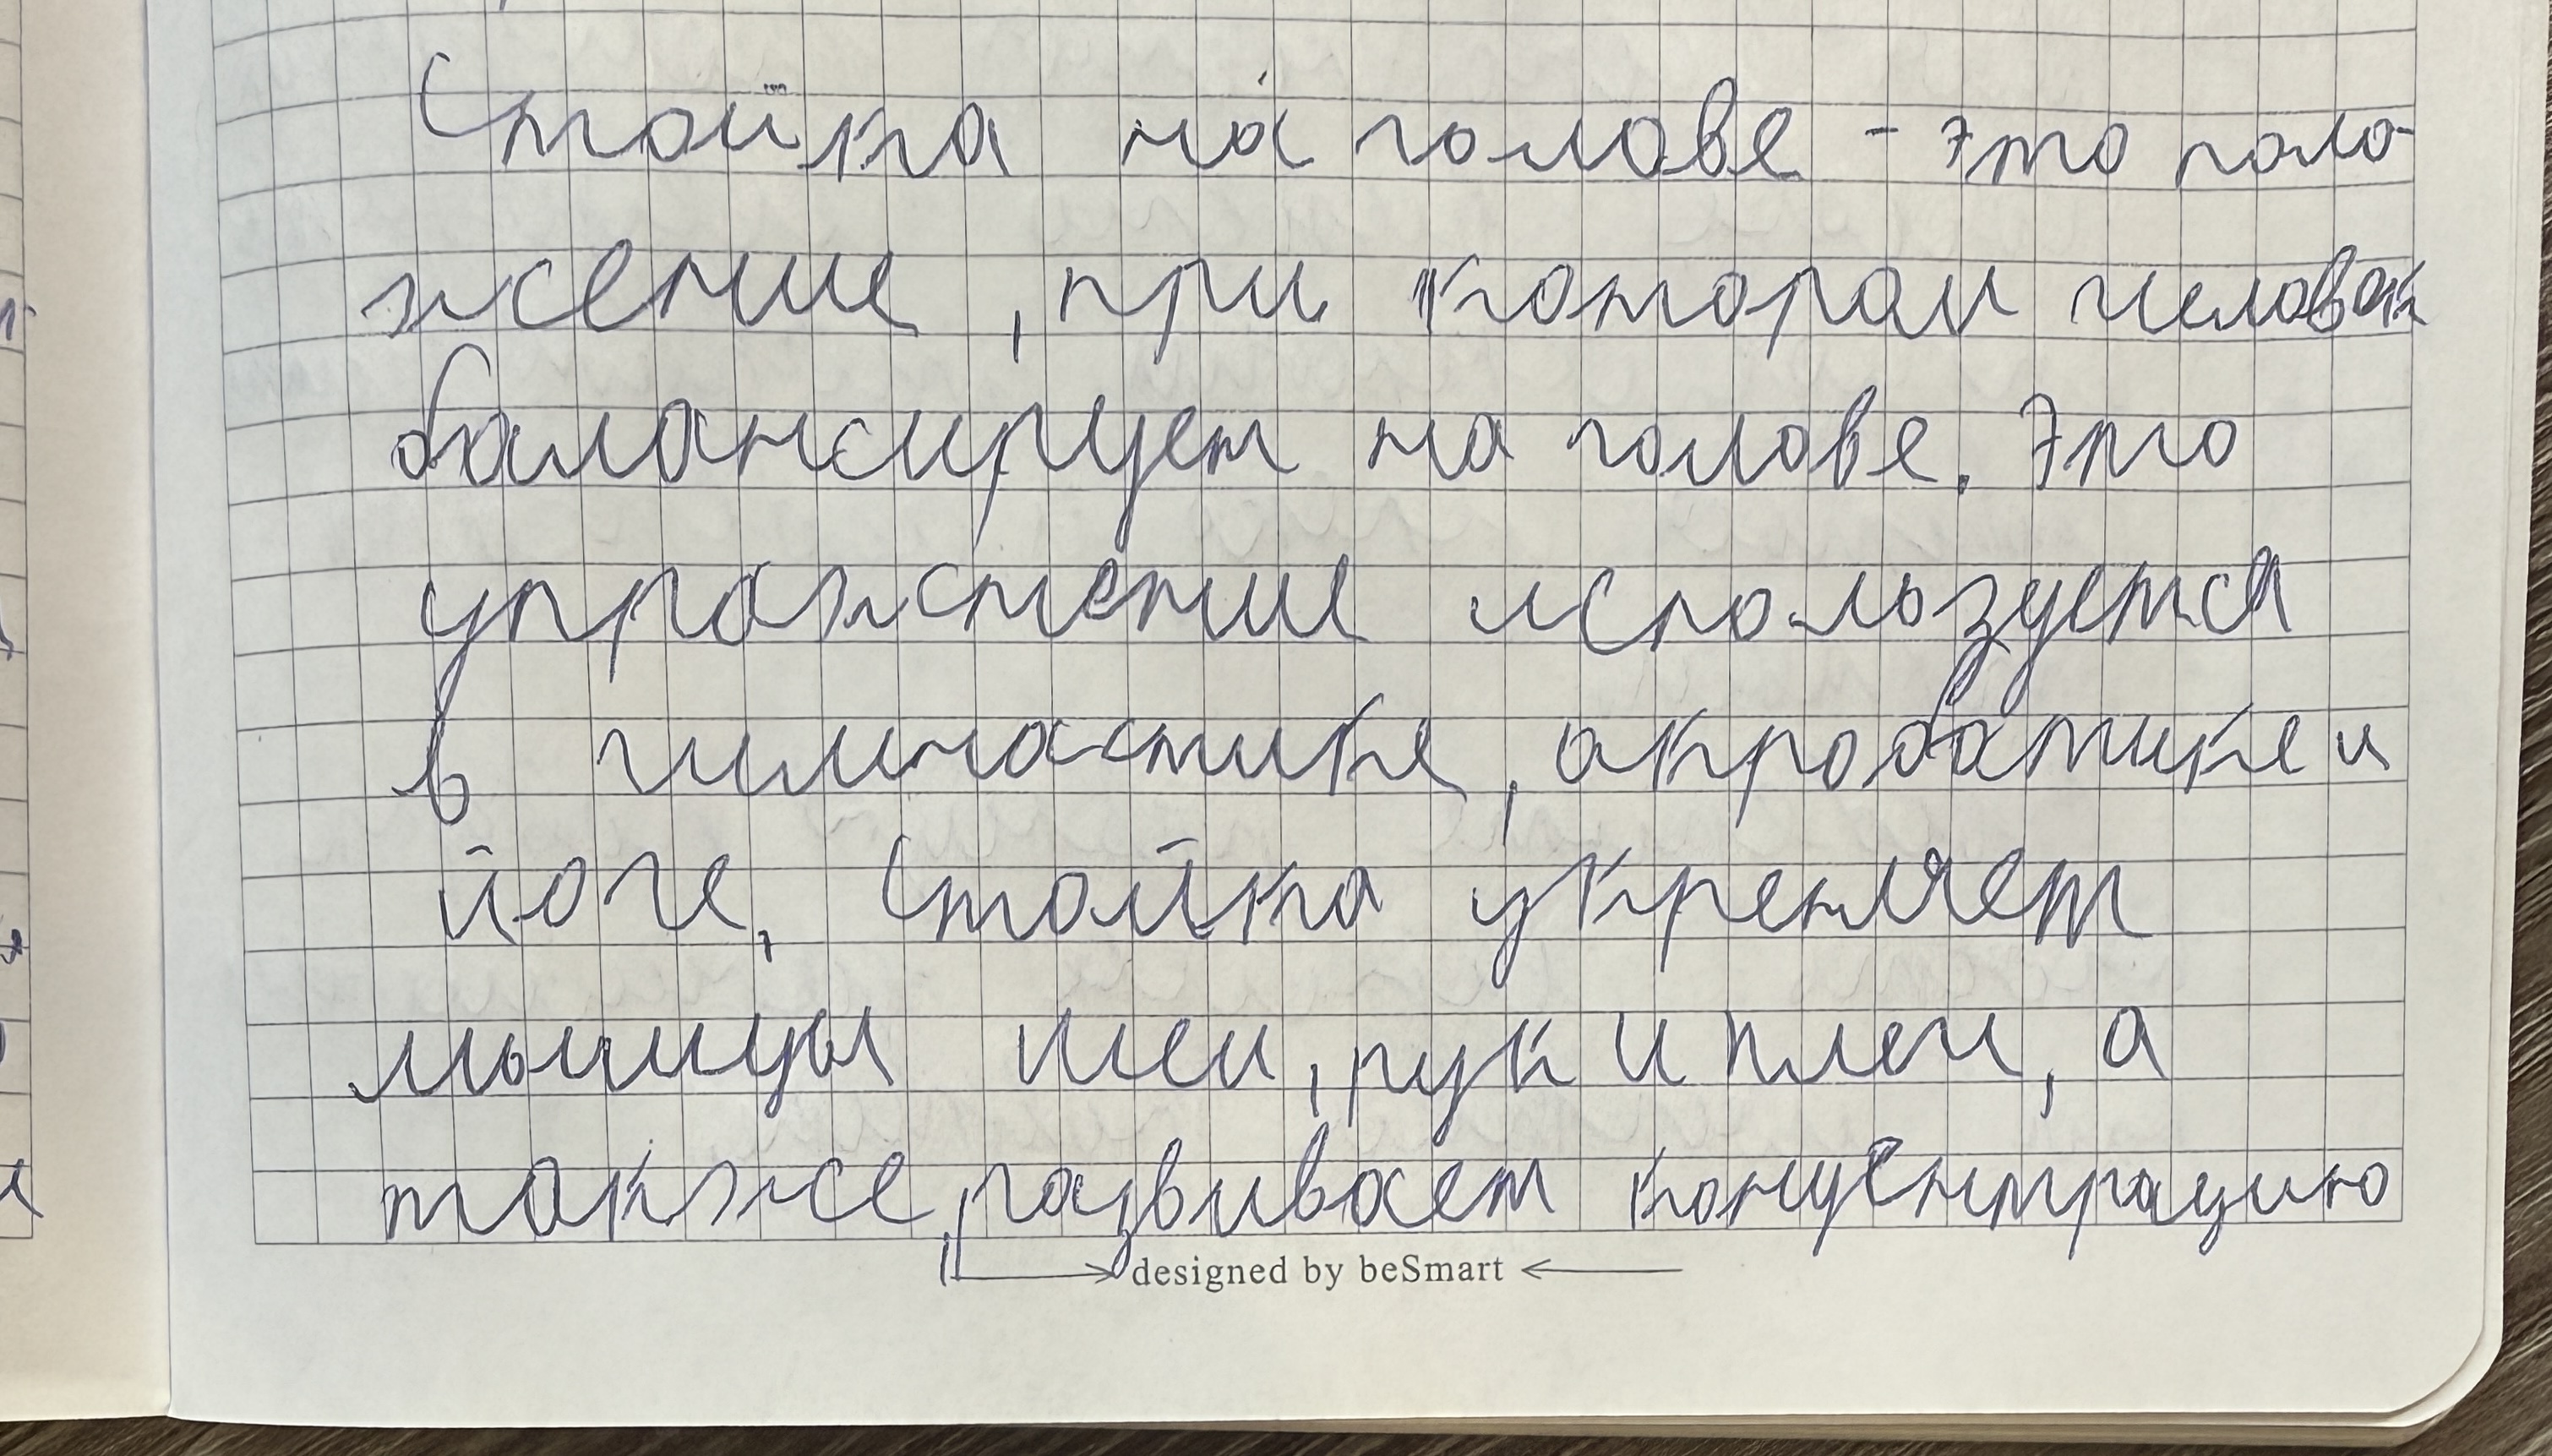 Стойка на голове - это поло-
жение, при котором человек
балансирует на голове. Это
упражнение используется
в гимнастике, акробатике и
йоге, Стойка укрепляет
мышцы шеи, рук и плеч, а
также, развивает концентрацию
designed by beSmart